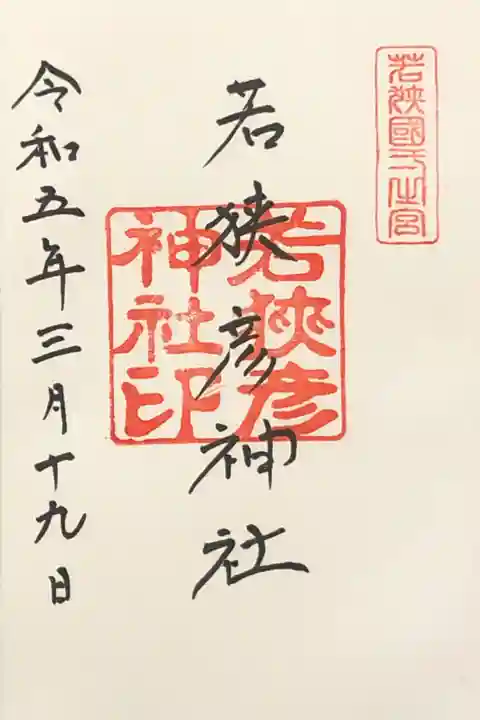 若狭國一之宮
若狭彦神社
若狭彦
神社印
令和五年三月十九日